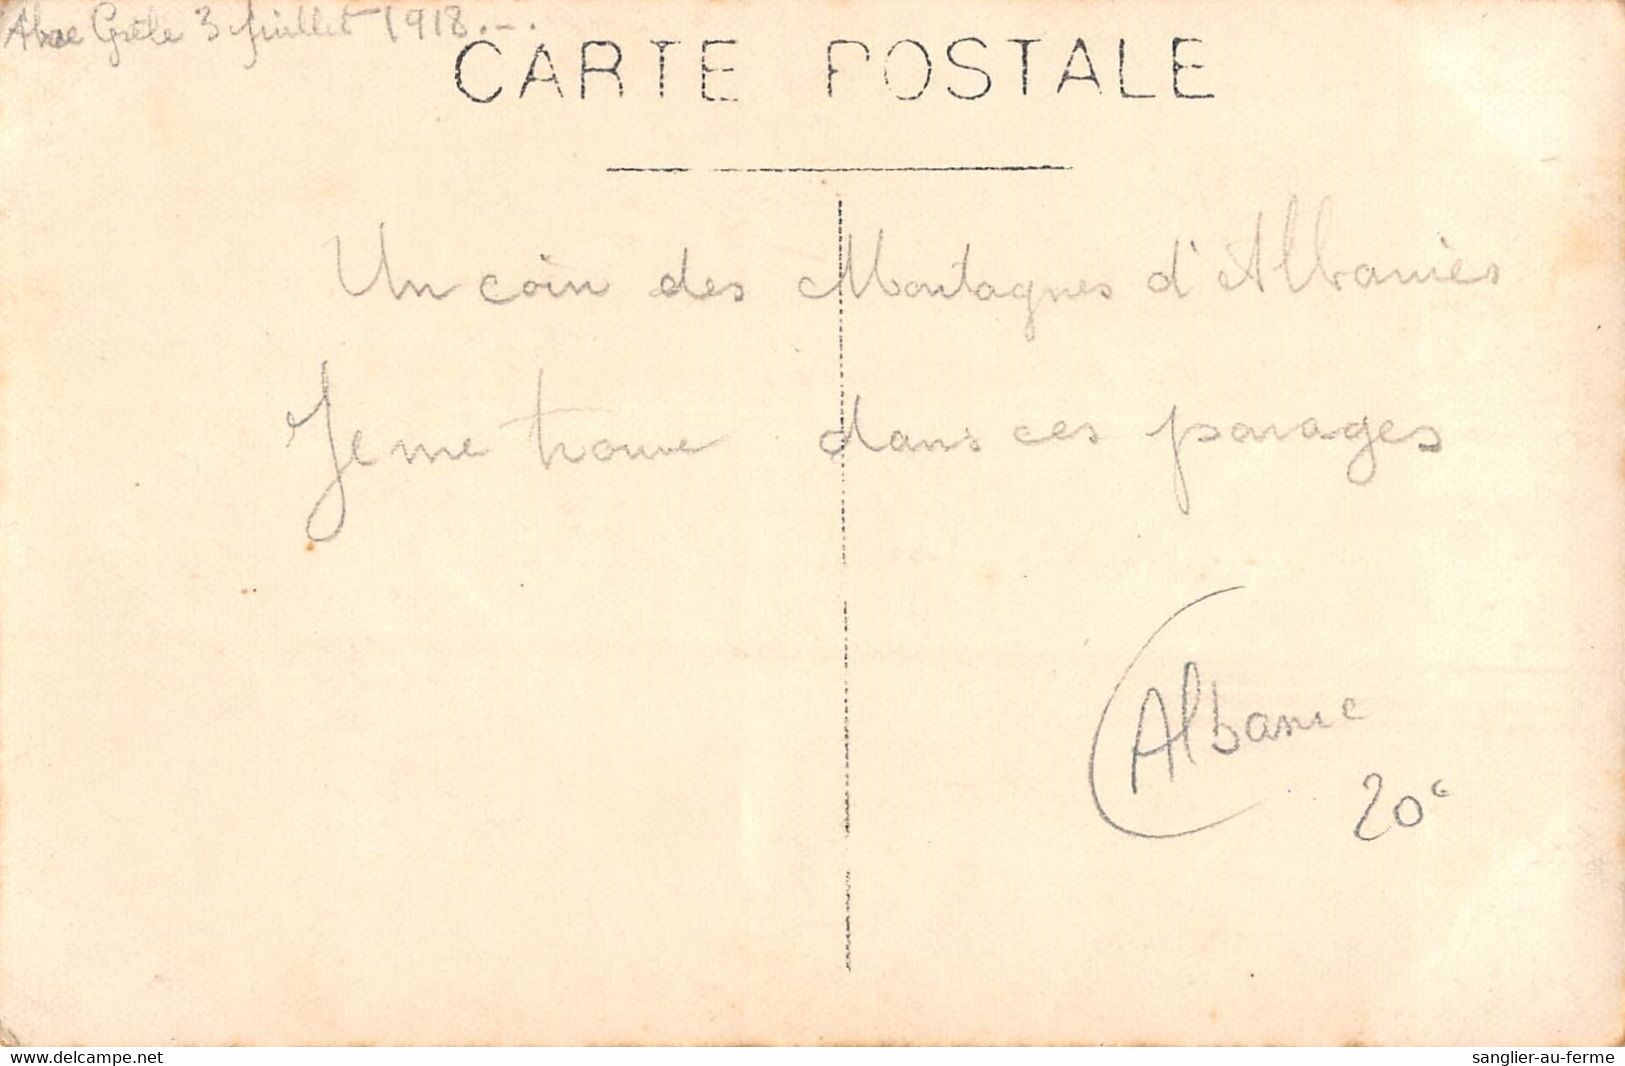 Grèle 3 Juillet 1918...
CARTE POSTALE
Un coin des Montagnes d'Albanies
Je me trouve dans ces parages
Albanie
20c
www.delcampe.net
sanglier-au-ferme